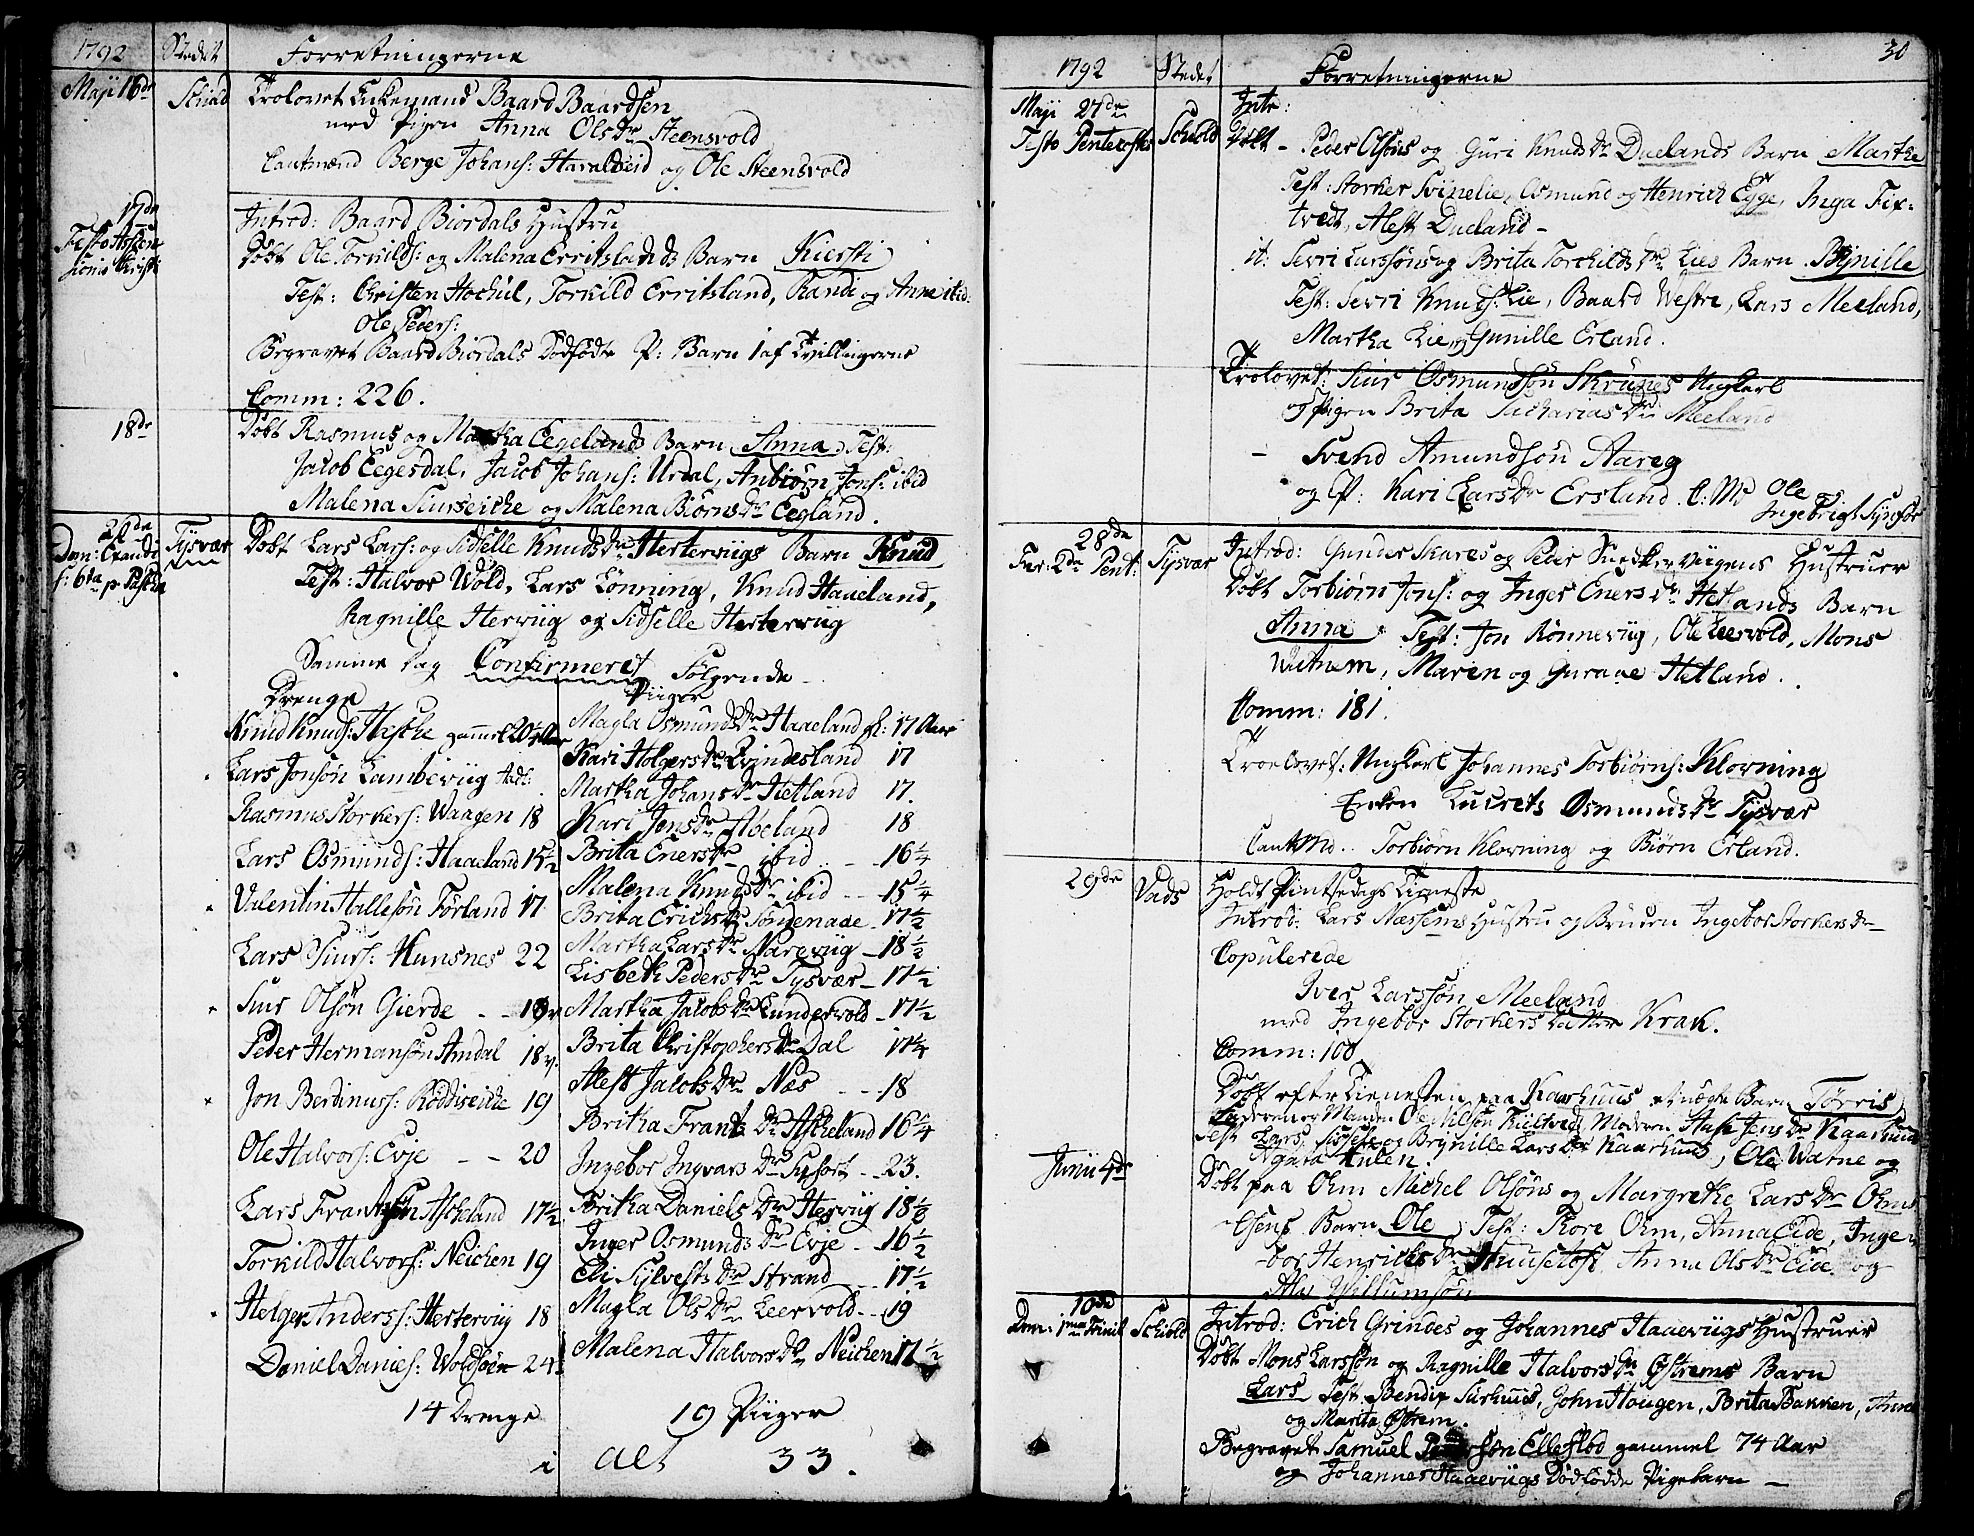 1792 Stedet Forretningerne
Maji 16de Schiold Trolovet Enkemand Baard Baardsen
med Pigen Anna Olsdr Steensvold
Cautmænd Berge Johans: Haraldseid og Ole Steensvold
17de
Festo Ascen-
sionis Christi
Introd: Baard Biordals Hustru
Døbt Ole Torkilds: og Malena Erritslands Barn Kiersti
Test: Christen Hochul, Torkild Erritsland, Randi og Anna ibid.
Ole Peders:
Begravet Baard Biordals Dødfødte P: Barn 1 af Tvillingerne
Comm: 226.
18de Døbt Rasmus og Martha Eegelands Barn Anna. Test:
Jacob Eegesdal, Jacob Johans: Urdal, Anbiørn Jons: ibid
Malena Siurseiche og Malena Biørnsdr Eegland.
20de
Dom: Exaudi Tysvær
s: 6ta p. Pascha
Døbt Lars Lars: og Sidselle Knudsdr Herterviigs Barn Knud
Test: Halvor Wold, Lars Lønning, Knud Haaeland,
Ragnille Herviig og Sidselle Herterviig
Samme Dag Confirmeret Følgende
Drenge
Knud Knuds: Hesthe gammel 20 1/4 Aar
Lars Jonsøn Lambeviig
Rasmus Storkers: Waagen 18
Lars Osmunds: Haaeland 15 1/2
Valentin Hallesøn Førland 17
Lars Siurs: Hunsnes 22
Siur Olsøn Gierde - - 19
Peder Hermansøn Amdal 18
Jon Berdinus: Røddiseiche 19
Ole Halvors: Evje - - 20
Lars Frantssøn Ascheland 17 1/2
Torkild Halvors: Neichen 19
Helge Anders: Herterviig 18
Daniel Daniels: Woldsøen 24
14 Drenge
Piiger
Magla Osmundsdr Haaeland gl: 17 Aar
Kari Holgersdr Qvindesland 17
Martha Johansdr Hetland 17.
Kari Jonsdr Aøeland 18
Brita Enersdr ibid - 16 1/4
Malena Knudsdr ibid - - 15 1/4
Brita Erichsdr Søndenaae - 17 1/2
Martha Larsdr Narreviig - 18 1/2
Lisbeth Pedersdr Tysvær - 17 1/2
Martha Jacobsdr Lundervold - 17 1/2
Brita Christophersdr Dal 17 1/4
Alest Jacobsdr Næs - - 18
Britha Frantsdr Ascheland 16 1/4
Ingebor Ingvarsdr - 23.
Britha Danielsdr Herviig 18 1/2
Inger Osmundsdr Evje - 16 1/2
Eli Sylvestsdr Strand - 17 1/2
Magla Olsdr Leervold - - 19
Malena Halvorsdr Neichen 17 1/2
19 Piiger
i alt 33.
30
1792 Stedet Forretningerne
Maji 27de Schiold Intr:
Festo Pentecostes Døbt - Peder Olsøns og Guri Knudsdr Duelands Barn Marthe
Test: Storker Svinelie, Osmund og Henrich Egge, Inga Fix-
tvedt, Alest Dueland -
it: Sevri Larssøns og Brita Torchildsdr Lies Barn Bynille
Test: Sevri Knuds: Lie, Baard Westre, Lars Meeland,
Martha Lie og Gunille Erland.
Trolovet: Siur Osmundsøn Skrunes Ungkarl
og Pigen Brita Sachariasdr Meeland
- Svend Amundsøn Aareg
og P: Kari Larsdr Ersland. C: M: Ole og
Ingebrigt Synfør
28de
Fer: 2da Pent: Tysvær Introd: Gunder Skares og Peder Hustruer
Døbt Torbiørn Jons: og Inger Enersdr Hetlands Barn
Anna. Test: Jon Rønneviig, Ole Leervold, Mons
, Maren og Guraae Hetland.
Comm: 181.
Troelovet: Ungkarl Johannes Torbiørns: Klovning
Enken Lucrets Osmundsdr Tysvær
Caut Md.. Torbiørn Klovning og Biørn Erland.
29de Vads Holdt Pintsedags Tieneste
Introd: Lars Næssems Hustru og Bruden Ingebor Storkersdr
Copulerede
Iver Larssøn Meeland
med Ingebor Storkers Krak.
Comm: 100
Døbt efter Tienesten paa Karhuus et uægte Barn Tørris
Faderen Manden Ole Nilsøn , Moderen Jensdr Kaarhuus
Test Lars, Sissele og Brynille Larsdr Kaarhuus, Ole Warne og
Agata Hulen.
Junii 4de Døbt paa Ohm Michel Olsøns og Margrethe Larsdr Ohms
Barn Ole. Test: Tore Ohm, Anna Eide, Inge-
bor Henrichsdr Anna Olsdr Eide og
Willumsøn
10de
Dom: 1ma Trinit Schiold Introd: Erich Grindes og Johannes Haaeviigs Hustruer
Døbt Mons Larssøn og Ragnille Halvorsdr Østrems Barn
Lars Test: Bendix Surhuus, John Haugen, Brita Bakken, Anna
og Marita Østrem.
Begravet Samuel Pederssøn Ellefslod gammel 74 Aar
og Johannes Haaeviigs Dødfødde Pigebarn -